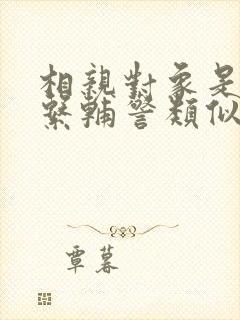 相親對象是
緊輔警類似
覃暮